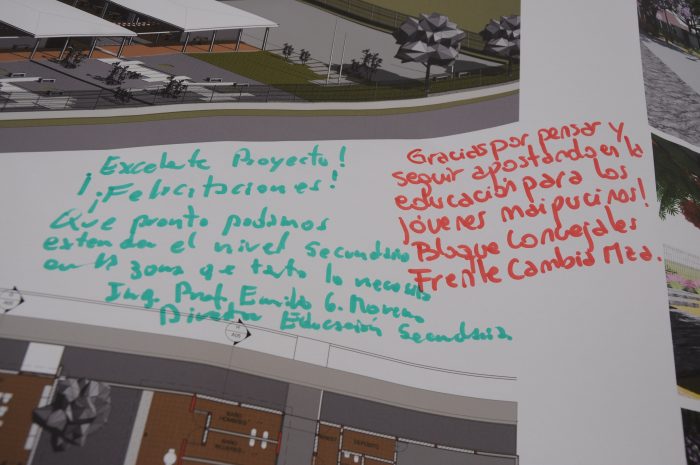 ¡Excelente Proyecto!
¡¡Felicitaciones!
Que pronto podamos
extender el nivel secundario
en la zona que tanto lo necesita
Ing. Prof. Emilio G. Moreno
Director Educación Secundaria
Gracias por pensar y
seguir apostando en la
educación para los
jóvenes maipucinos!
Bloque Concejales
Frente Cambia Mza.
BAÑO
HOMBRES
BAÑO
MUJERES
DEPOSITO